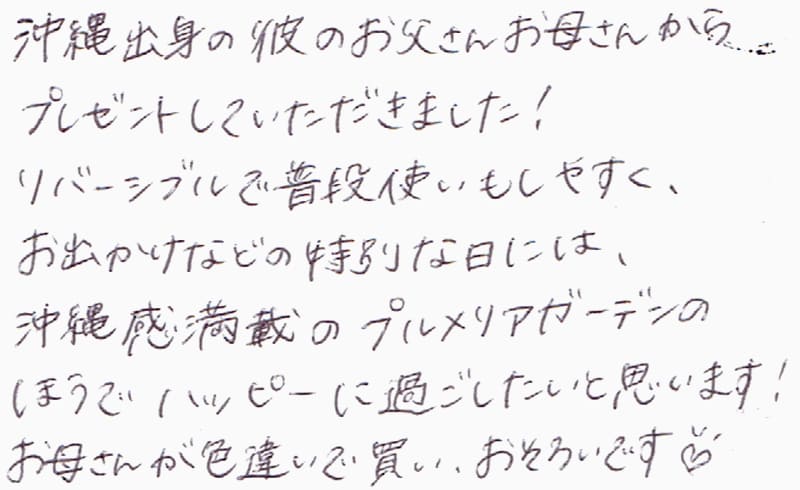 沖縄出身の彼のお父さんお母さんから
プレゼントしていただきました！
リバーシブルで普段使いもしやすく、
お出かけなどの特別な日には、
沖縄感満載のプルメリアガーデンの
ほうでハッピーに過ごしたいと思います！
お母さんが色違いで買い、おそろいです♡